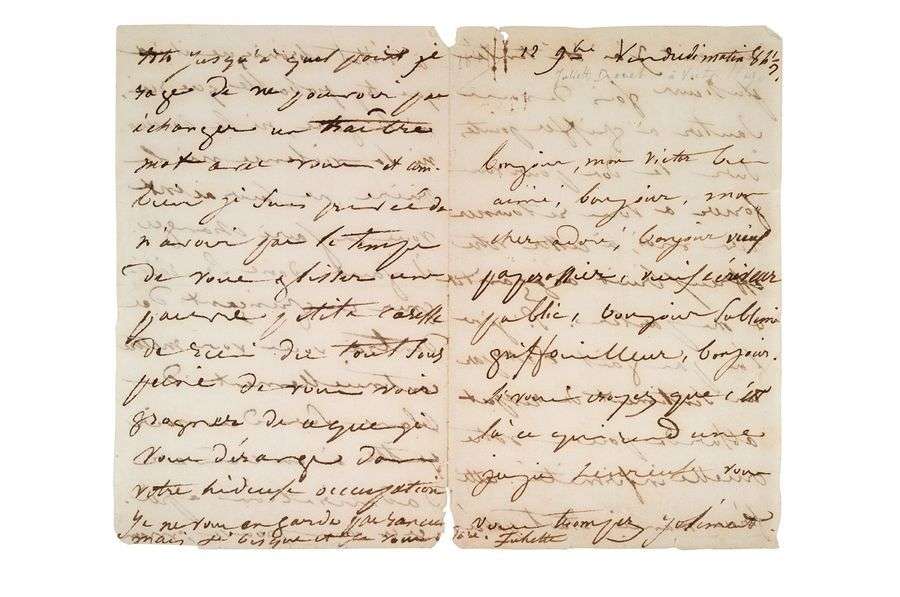 jusqu'à quel point je
rage de ne pouvoir pas
échanger un traître
mot avec vous et com-
bien je suis privée de
n'avoir pas le temps
de vous glisser une
pauvre petite caresse
de rien du tout sous
peine de vous voir
grogner de ce que je
vous dérange dans
votre hideuse occupation
Je ne vous en garde pas rancune
mais je bisque et je vous
Juliette
12 9bre Vendredi matin 8h ½
Juliette Drouet à Victor Hugo
bonjour, mon victor bien
aimé, bonjour, mon
cher adoré, bonjour vieux
paperassier, vieux écriveur
public, bonjour sublime
griffouilleur, bonjour.
Si vous croyez que c'est
là ce qui rend une
juju heureuse vous
vous trompez